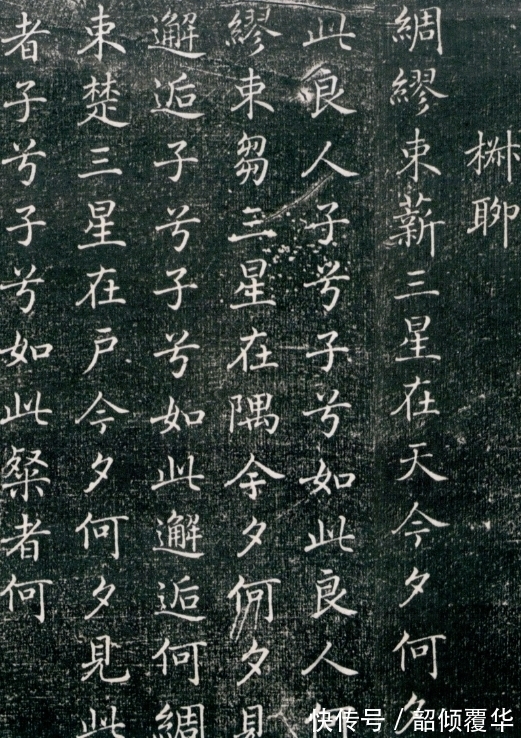 椒聊
綢繆束薪三星在天今夕何夕
此良人子兮子兮如此良人
繆束芻三星在隅今夕何夕見
邂逅子兮子兮如此邂逅何綢
束楚三星在戶今夕何夕見此
者子兮子兮如此粲者何
快传号/韶倾覆华